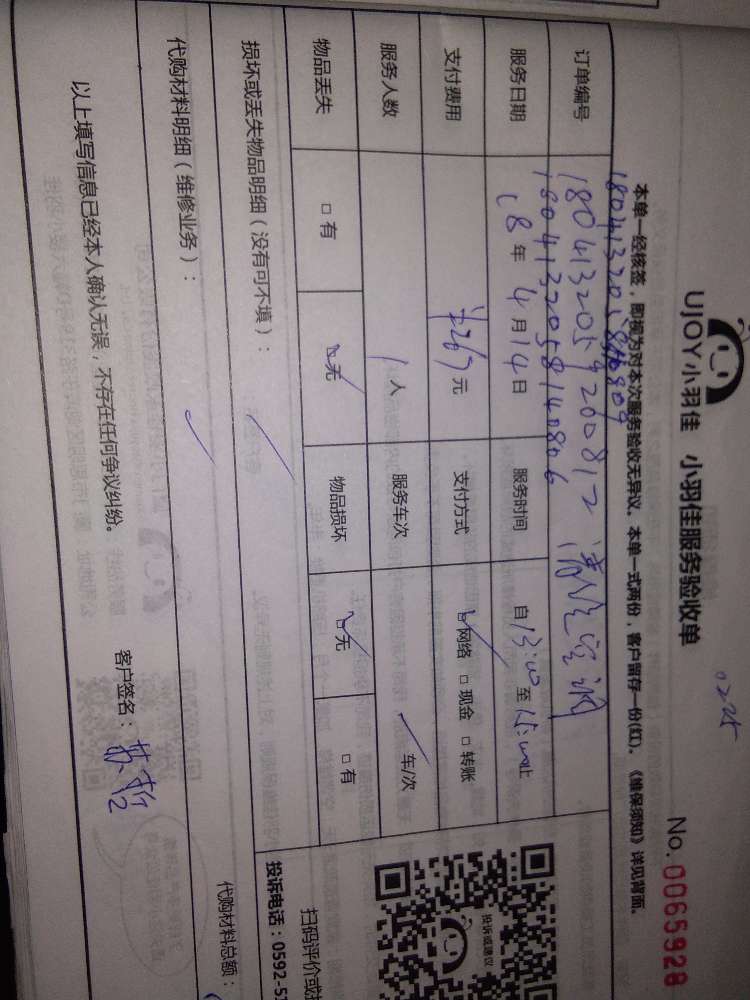 0225
UJOY小羽佳 小羽佳服务验收单
No. 0065928
本单一经核签，即视为对本次服务验收无异议。本单一式两份，客户留存一份(红)。《维保须知》详见背面。
订单编号 1804132059200812 清洗空调
1804132058140806
服务日期 18年4月14日 服务时间 自13:00至15:00止
支付费用 ￥267元 支付方式 ☑网络 □现金 □转账
服务人数 1人 服务车次 车/次
物品丢失 □有 ☑无 物品损坏 ☑无 □有
损坏或丢失物品明细（没有可不填）：
代购材料明细（维修业务）：
代购材料总额：
以上填写信息已经本人确认无误，不存在任何争议纠纷。
客户签名：
投诉或建议
扫码评价或
投诉电话：0592-5